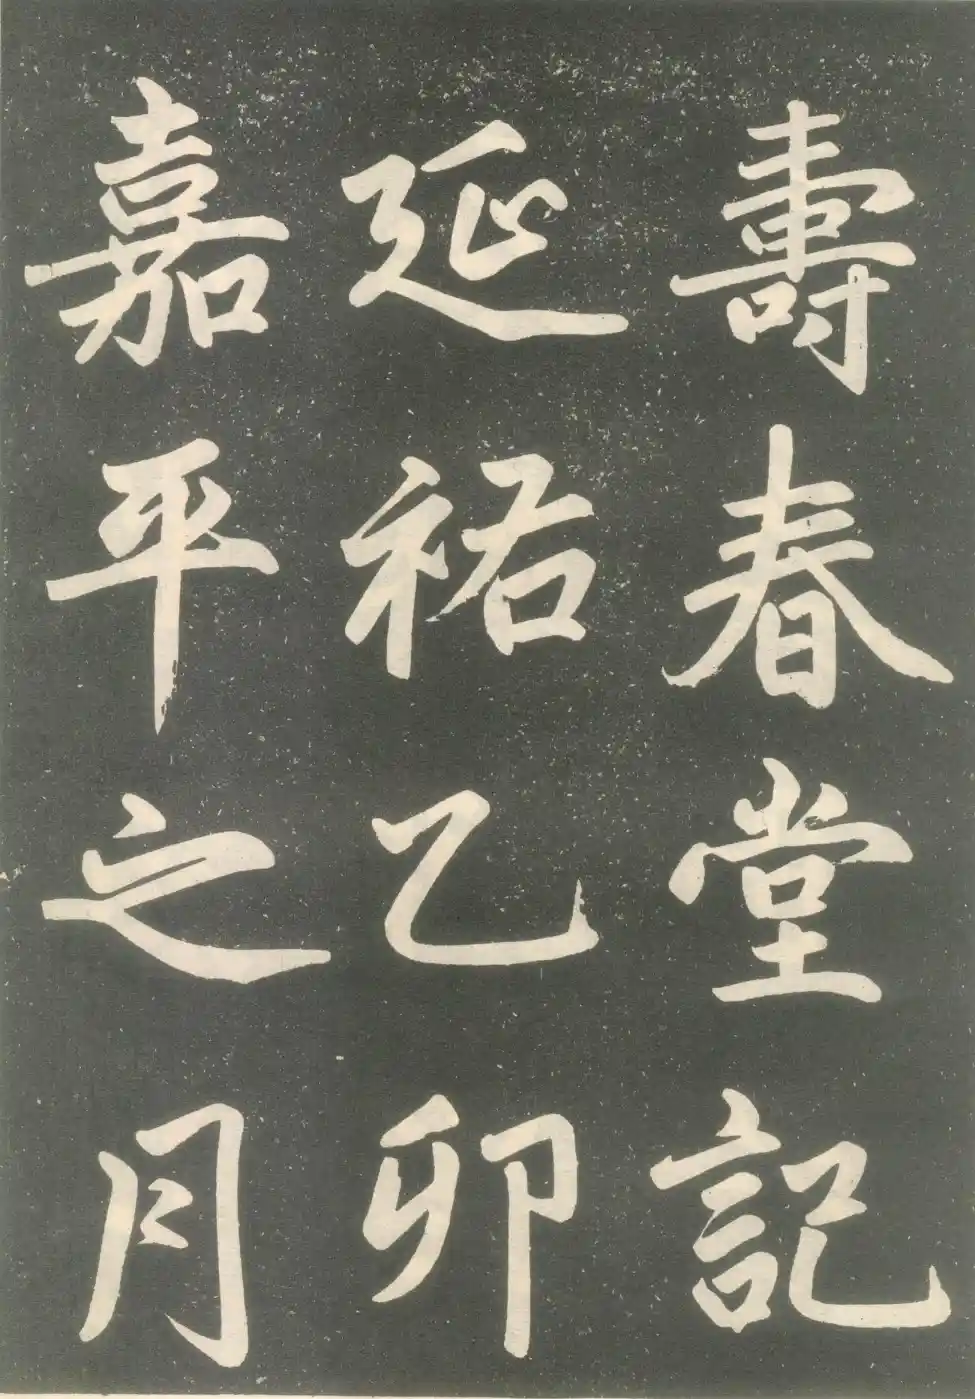 壽春堂記
延祐乙卯
嘉平之月